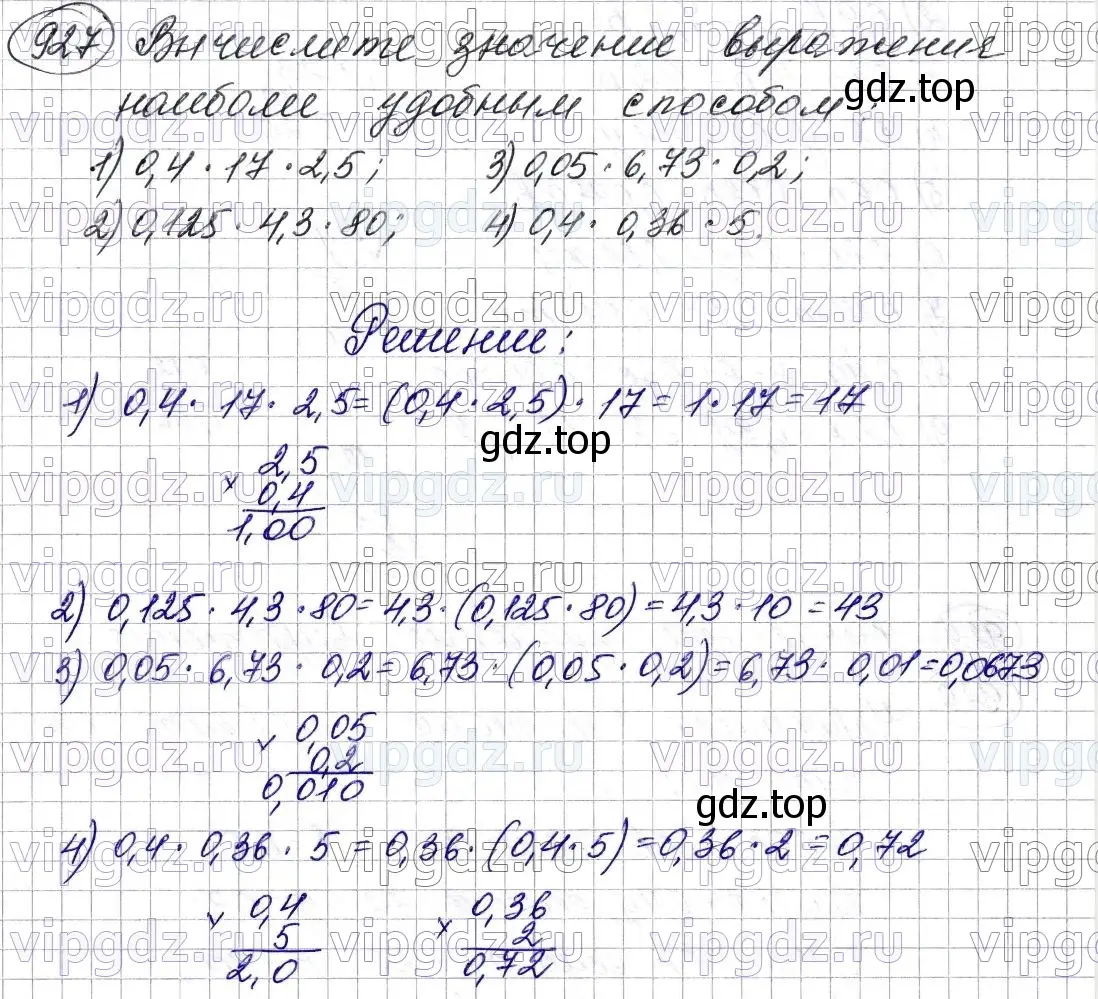 927 Вычислите значение выражения
наиболее удобным способом:
gdz.top
1) 0,4 · 17 · 2,5; 3) 0,05 · 6,73 · 0,2;
2) 0,125 · 4,3 · 80; 4) 0,4 · 0,36 · 5.
vipgdz.ru
Решение:
1) 0,4 · 17 · 2,5 = (0,4 · 2,5) · 17 = 1 · 17 = 17
gdz.top
2,5
× 0,4
1,00
2) 0,125 · 4,3 · 80 = 4,3 · (0,125 · 80) = 4,3 · 10 = 43
3) 0,05 · 6,73 · 0,2 = 6,73 · (0,05 · 0,2) = 6,73 · 0,01 = 0,0673
0,05
× 0,2
0,010
gdz.top
4) 0,4 · 0,36 · 5 = 0,36 · (0,4 · 5) = 0,36 · 2 = 0,72
0,4
× 5
2,0
0,36
× 2
0,72